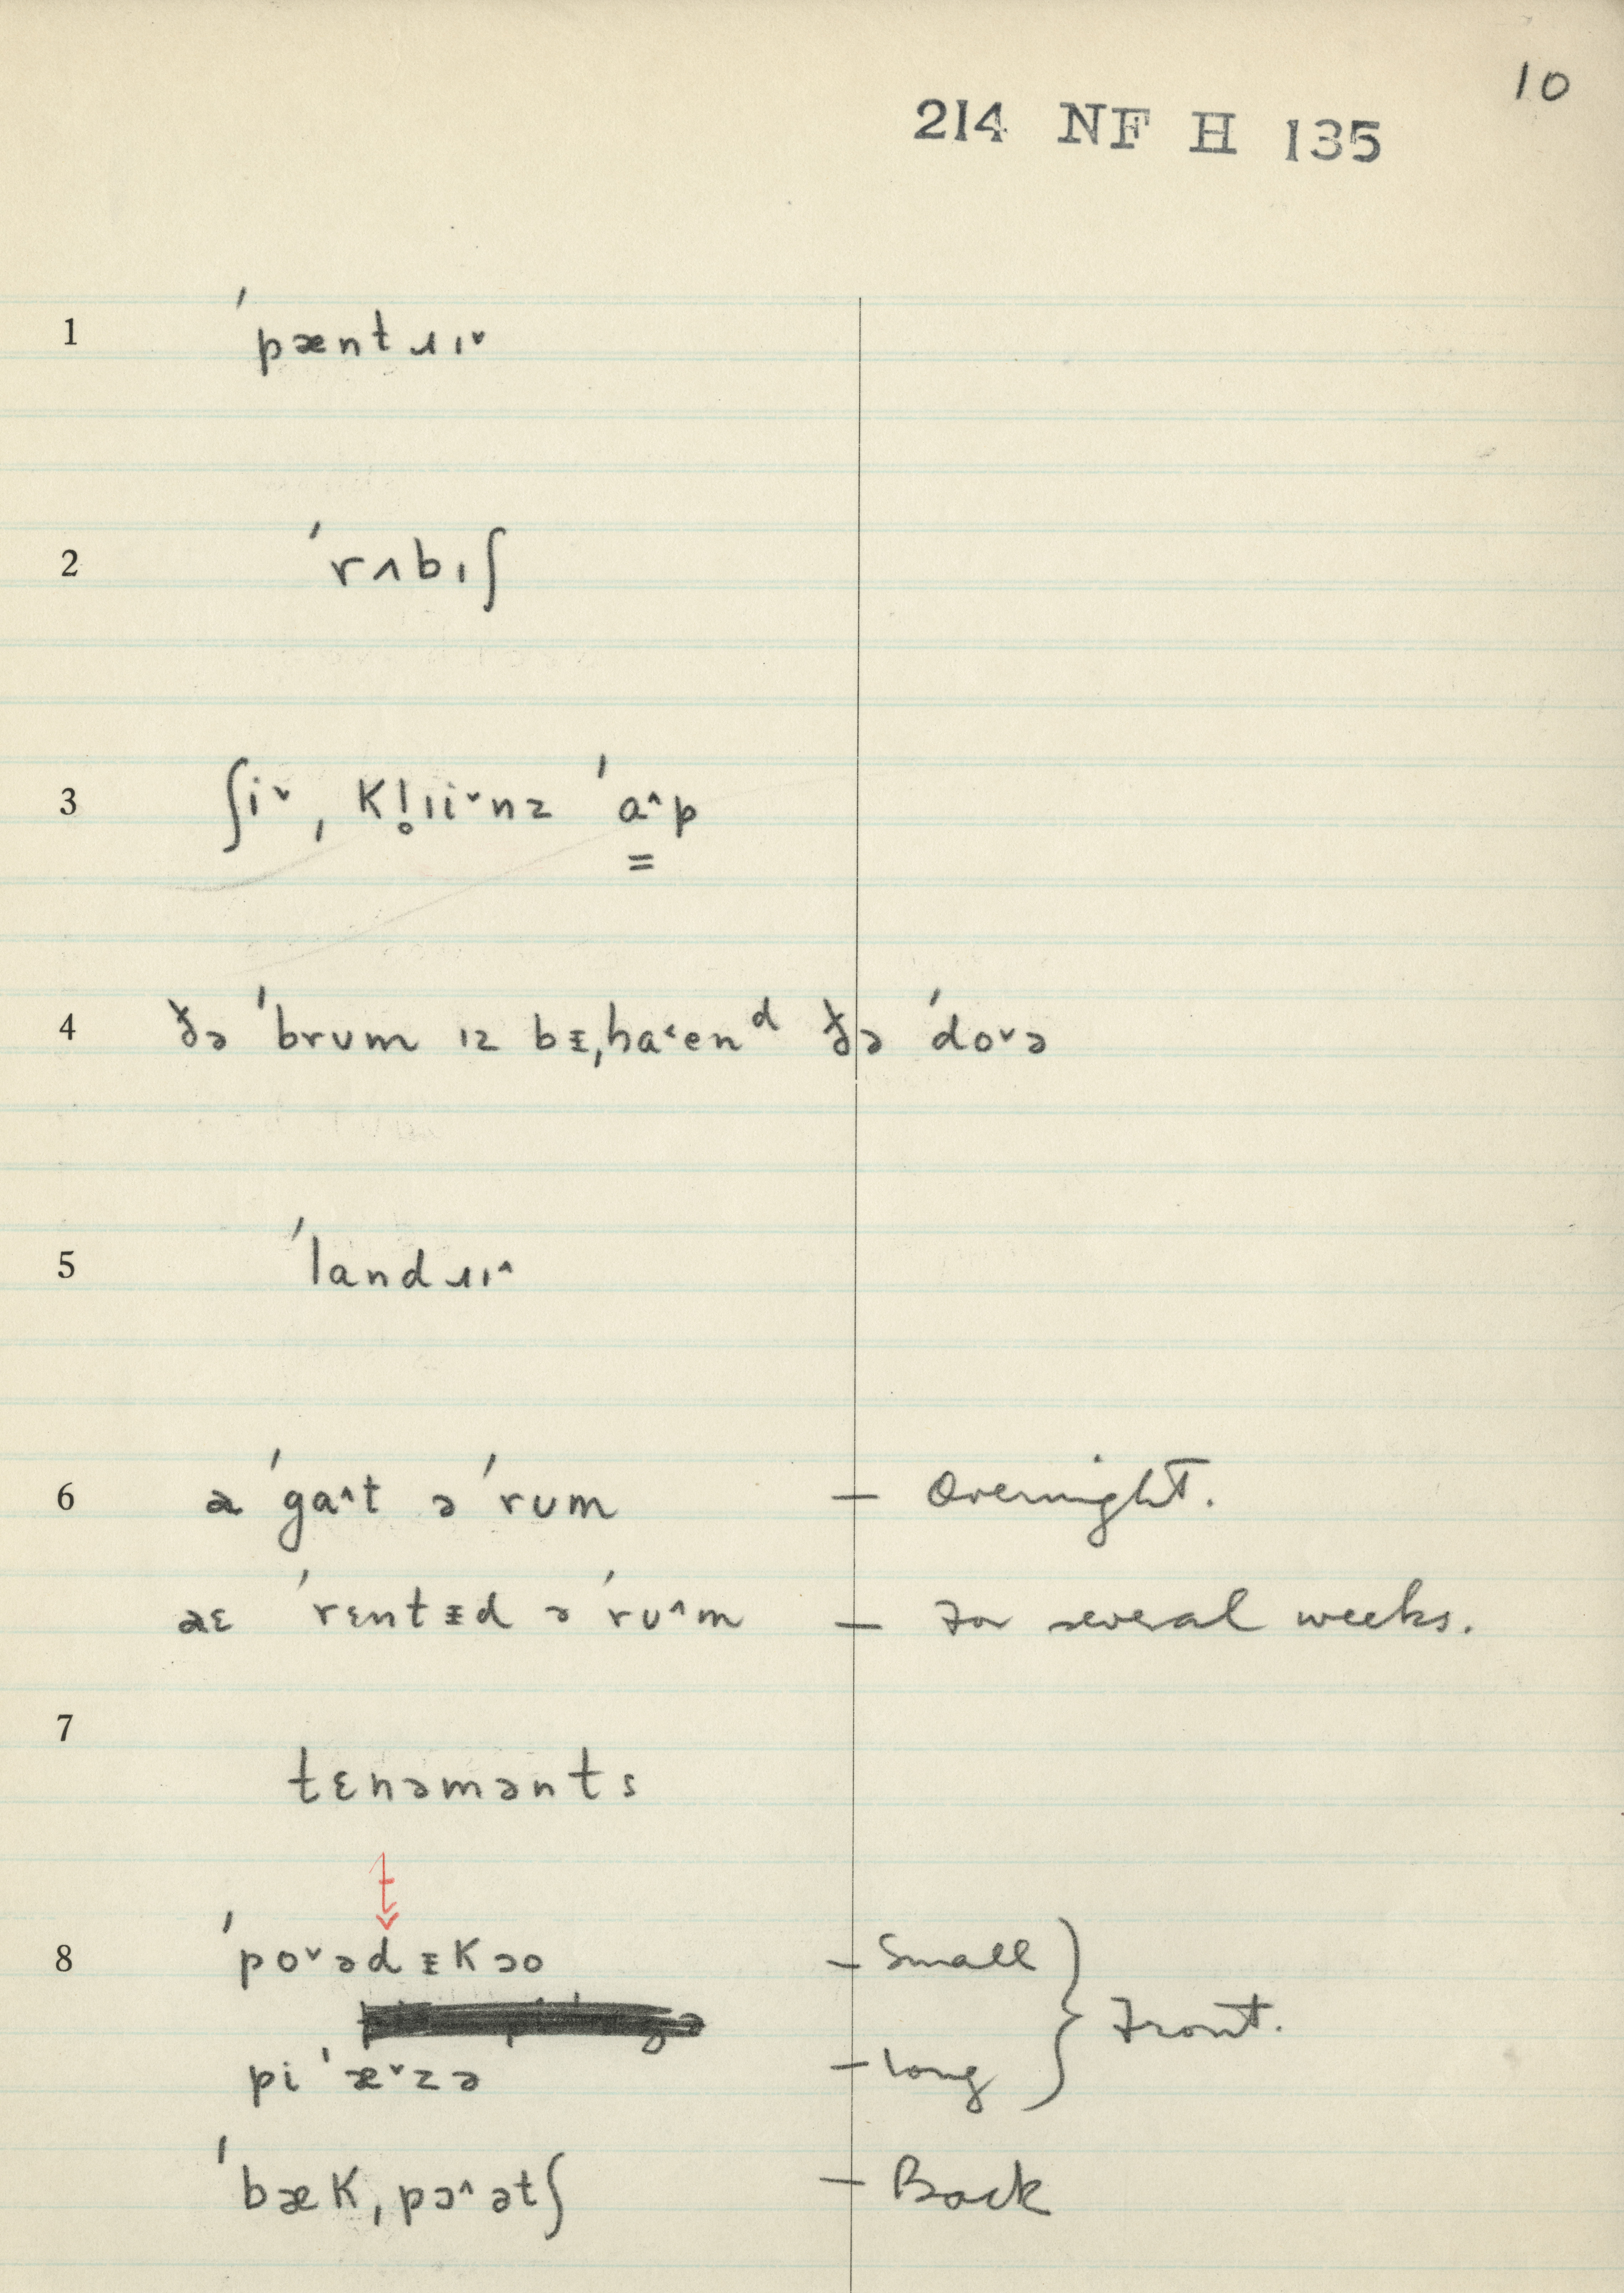 10
214 NF H 135
1 ˈpæntɹɪ˅
2 ˈrʌbɪʃ
3 ʃi˅ ˌkl̥ɪi˅nz ˈa˄p
4 ðə ˈbrʊm ɪz bᵻˌha˂enᵈ ðə ˈdo˅ə
5 ˈlandɹɪ˄
6 a ˈga˄t ə ˈrʊm – Overnight.
aɛ ˈrɛntᵻd ə ˈrʊ˄m – For several weeks.
7 tɛnəmənts
t
8 ˈpo˅ədᵻkəo – Small
pi ˈæ˅zə – long } Front.
ˈbæk ˌpɔ˄ətʃ – Back